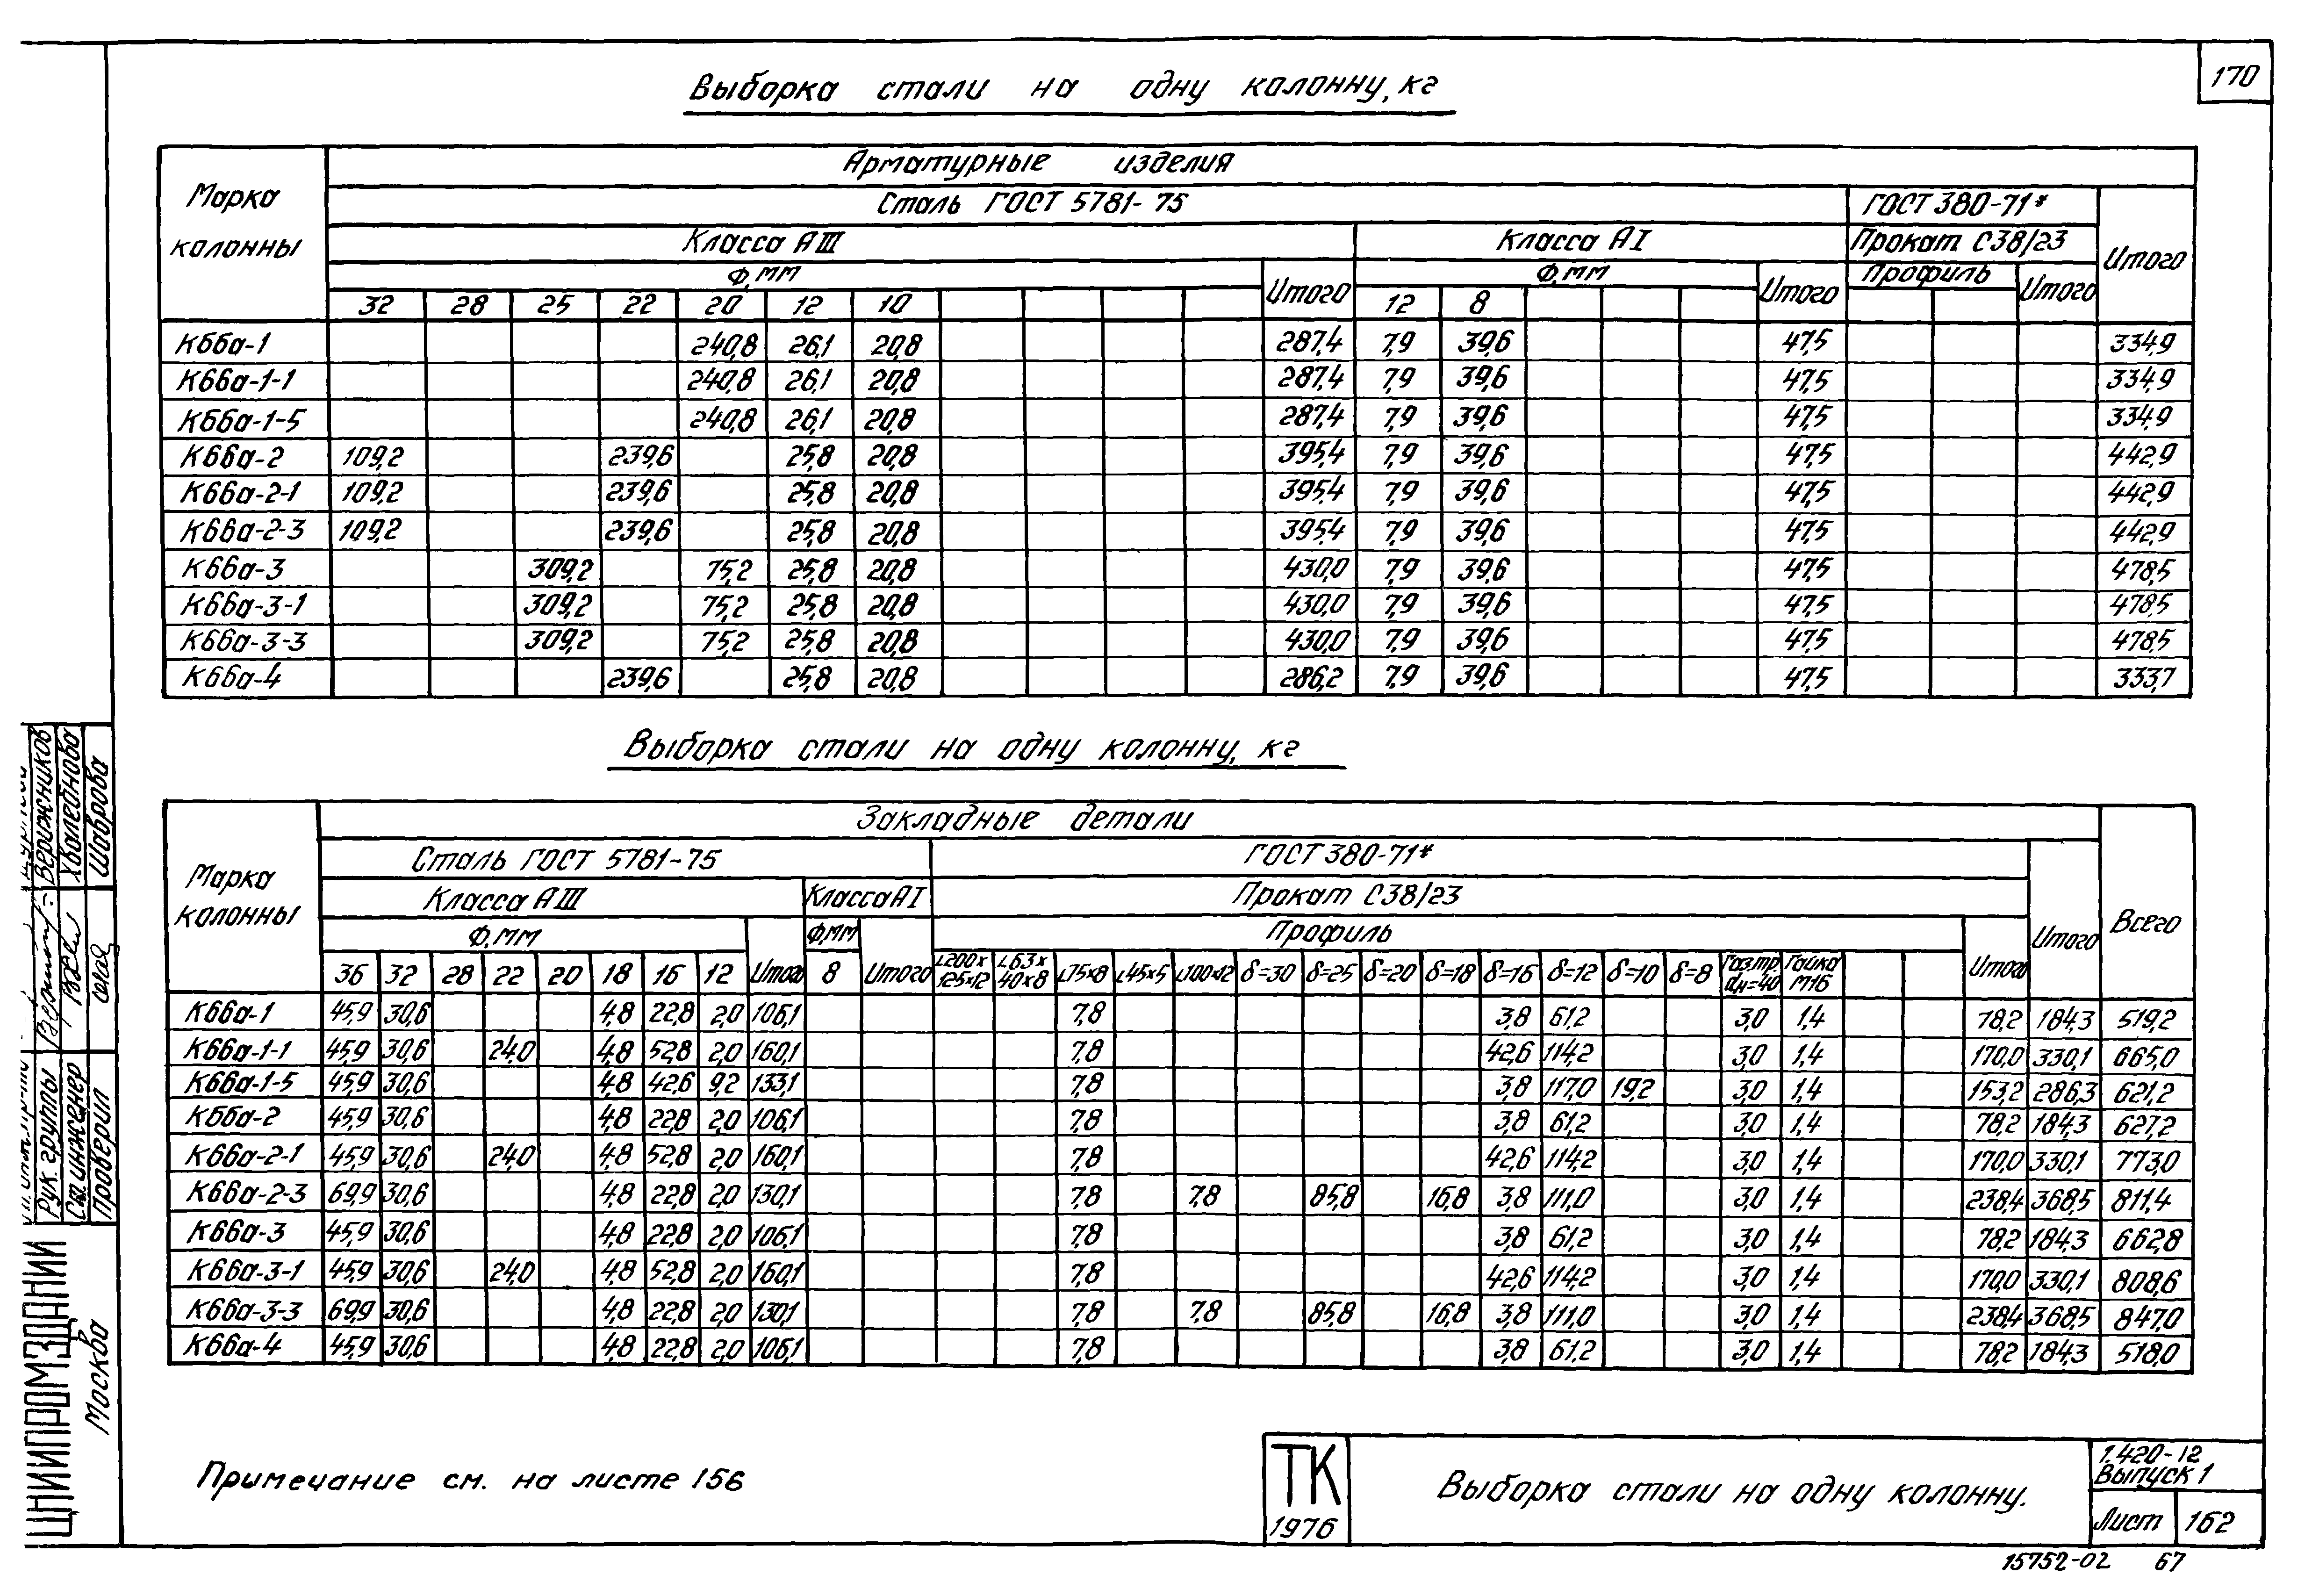 170
Выборка стали на одну колонну, кг
Марка колонны
Арматурные изделия
Сталь ГОСТ 5781-75 ГОСТ 380-71* Итого
Класса АIII Класса АI Прокат С38/23
Ф, мм Итого Ф, мм Итого Профиль Итого
32 28 25 22 20 12 10 12 8
К66а-1 240,8 26,1 20,8 287,4 7,9 39,6 47,5 334,9
К66а-1-1 240,8 26,1 20,8 287,4 7,9 39,6 47,5 334,9
К66а-1-5 240,8 26,1 20,8 287,4 7,9 39,6 47,5 334,9
К66а-2 109,2 239,6 25,8 20,8 395,4 7,9 39,6 47,5 442,9
К66а-2-1 109,2 239,6 25,8 20,8 395,4 7,9 39,6 47,5 442,9
К66а-2-3 109,2 239,6 25,8 20,8 395,4 7,9 39,6 47,5 442,9
К66а-3 309,2 75,2 25,8 20,8 430,0 7,9 39,6 47,5 478,5
К66а-3-1 309,2 75,2 25,8 20,8 430,0 7,9 39,6 47,5 478,5
К66а-3-3 309,2 75,2 25,8 20,8 430,0 7,9 39,6 47,5 478,5
К66а-4 239,6 25,8 20,8 286,2 7,9 39,6 47,5 333,7
Выборка стали на одну колонну, кг
Марка колонны
Закладные детали Всего
Сталь ГОСТ 5781-75 ГОСТ 380-71* Итого
Класса АIII Класса АI Прокат С38/23
Ф, мм Итого Ф, мм Итого Профиль Итого
36 32 28 22 20 18 16 12 8 L200×125×12 L63×40×8 L75×8 L45×5 L100×12 δ=30 δ=25 δ=20 δ=18 δ=16 δ=12 δ=10 δ=8 Газ.тр. dн=40 Гайка М16
К66а-1 45,9 30,6 4,8 22,8 2,0 106,1 7,8 3,8 61,2 3,0 1,4 78,2 184,3 519,2
К66а-1-1 45,9 30,6 24,0 4,8 52,8 2,0 160,1 7,8 42,6 114,2 3,0 1,4 170,0 330,1 665,0
К66а-1-5 45,9 30,6 4,8 42,6 9,2 133,1 7,8 3,8 117,0 19,2 3,0 1,4 153,2 286,3 621,2
К66а-2 45,9 30,6 4,8 22,8 2,0 106,1 7,8 3,8 61,2 3,0 1,4 78,2 184,3 627,2
К66а-2-1 45,9 30,6 24,0 4,8 52,8 2,0 160,1 7,8 42,6 114,2 3,0 1,4 170,0 330,1 773,0
К66а-2-3 69,9 30,6 4,8 22,8 2,0 130,1 7,8 7,8 85,8 16,8 3,8 111,0 3,0 1,4 238,4 368,5 811,4
К66а-3 45,9 30,6 4,8 22,8 2,0 106,1 7,8 3,8 61,2 3,0 1,4 78,2 184,3 662,8
К66а-3-1 45,9 30,6 24,0 4,8 52,8 2,0 160,1 7,8 42,6 114,2 3,0 1,4 170,0 330,1 808,6
К66а-3-3 69,9 30,6 4,8 22,8 2,0 130,1 7,8 7,8 85,8 16,8 3,8 111,0 3,0 1,4 238,4 368,5 847,0
К66а-4 45,9 30,6 4,8 22,8 2,0 106,1 7,8 3,8 61,2 3,0 1,4 78,2 184,3 518,0
Примечание см. на листе 156
ТК
1976
Выборка стали на одну колонну.
1.420-12
Выпуск 1
Лист 162
15752-02 67
ЦНИИПРОМЗДАНИЙ
Москва
Рук. группы Верижников
Ст. инженер Хвалебнова
Проверил Шаврова